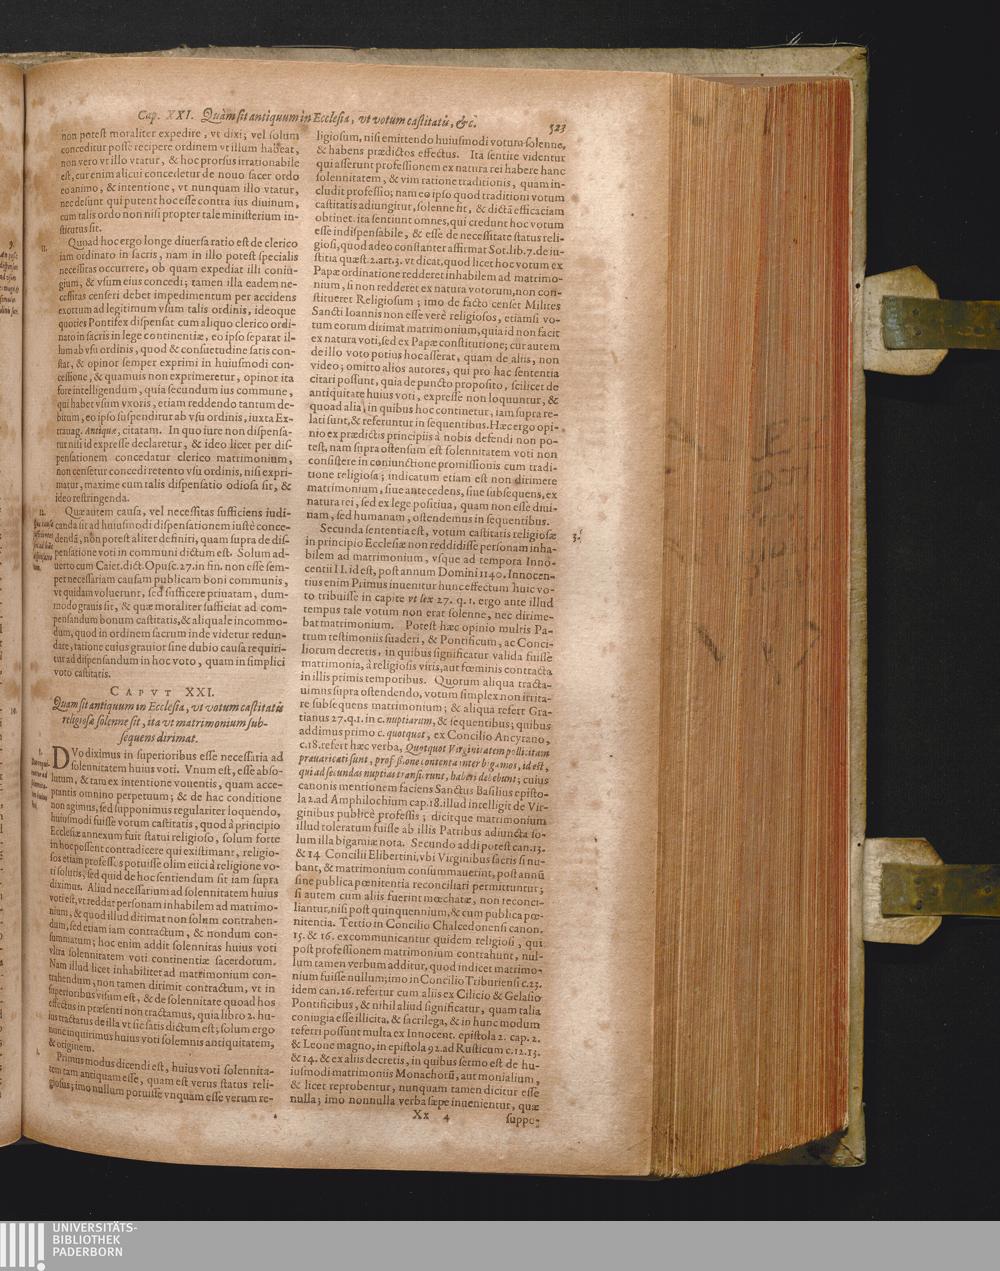 Cap. XXI. Quàm sit antiquum in Ecclesia, vt votum castitatis, &c.
523
non potest moraliter expedire, vt dixi; vel solum
conceditur posse recipere ordinem vt illum habeat,
non vero vt illo vtatur, & hoc prorsus irrationabile
est, cur enim alicui concedetur de nouo sacer ordo
eo animo, & intentione, vt nunquam illo vtatur,
nec desunt qui putent hoc esse contra ius diuinum,
cum talis ordo non nisi propter tale ministerium in-
stitutus sit.
11.
Quoad hoc ergo longe diuersa ratio est de clerico
iam ordinato in sacris, nam in illo potest specialis
necessitas occurrere, ob quam expediat illi coniu-
gium, & vsum eius concedi; tamen illa eadem ne-
cessitas censeri debet impedimentum per accidens
exortum ad legitimum vsum talis ordinis, ideoque
quoties Pontifex dispensat cum aliquo clerico ordi-
nato in sacris in lege continentiæ, eo ipso separat il-
lum ab vsu ordinis, quod & consuetudine satis con-
stat, & opinor semper exprimi in huiusmodi con-
cessione, & quamuis non exprimeretur, opinor ita
fore intelligendum, quia secundum ius commune,
qui habet vsum vxoris, etiam reddendo tantum de-
bitum, eo ipso suspenditur ab vsu ordinis, iuxta Ex-
trauag. Antiquæ, citatam. In quo iure non dispensa-
tur nisi id expresse declaretur, & ideo licet per dis-
pensationem concedatur clerico matrimonium,
non censetur concedi retento vsu ordinis, nisi expri-
matur, maxime cum talis dispensatio odiosa sit, &
ideo restringenda.
12.
Quæ autem causa, vel necessitas sufficiens iudi-
canda sit ad huiusmodi dispensationem iustè conce-
dendã, non potest aliter definiri, quam supra de dis-
pensatione voti in communi dictum est. Solum ad-
uerto cum Caiet. dict. Opusc. 27. in fin. non esse sem-
per necessariam causam publicam boni communis,
vt quidam voluerunt, sed sufficere priuatam, dum-
modo grauis sit, & quæ moraliter sufficiat ad com-
pensandum bonum castitatis, & aliquale incommo-
dum, quod in ordinem sacrum inde videtur redun-
dare, ratione cuius grauior sine dubio causa requiri-
tur ad dispensandum in hoc voto, quam in simplici
voto castitatis.
CAPVT XXI.
Quam sit antiquum in Ecclesia, vt votum castitatis
religiosæ solenne sit, ita vt matrimonium sub-
sequens dirimat.
1.
DVo diximus in superioribus esse necessaria ad
solennitatem huius voti. Vnum est, esse abso-
lutum, & tam ex intentione vouentis, quam acce-
ptantis omnino perpetuum; & de hac conditione
non agimus, sed supponimus regulariter loquendo,
huiusmodi fuisse votum castitatis, quod à principio
Ecclesiæ annexum fuit statui religioso, solum forte
in hoc possent contradicere qui existimant, religio-
sos etiam professos potuisse olim eiici à religione vo-
ti solutis, sed quid de hoc sentiendum sit iam supra
diximus. Aliud necessarium ad solennitatem huius
voti est, vt reddat personam inhabilem ad matrimo-
nium, & quod illud dirimat non solum contrahen-
dum, sed etiam iam contractum, & nondum con-
summatum; hoc enim addit solennitas huius voti
vltra solennitatem voti continentiæ sacerdotum.
Nam illud licet inhabilitet ad matrimonium con-
trahendum, non tamen dirimit contractum, vt in
superioribus visum est, & de solennitate quoad hos
effectus in præsenti non tractamus, quia libro 2. hu-
ius tractatus de illa vt sic satis dictum est; solum ergo
nunc inquirimus huius voti solemnis antiquitatem,
& originem.
Primus modus dicendi est, huius voti solennita-
tem tam antiquam esse, quam est verus status reli-
giosus; imo nullum potuisse vnquam esse verum re-
ligiosum, nisi emittendo huiusmodi votum solenne,
& habens prædictos effectus. Ita sentire videntur
qui asserunt professionem ex natura rei habere hanc
solennitatem, & vim ratione traditionis, quam in-
cludit professio; nam eo ipso quod traditioni votum
castitatis adiungitur, solenne fit, & dictã efficaciam
obtinet. ita sentiunt omnes, qui credunt hoc votum
esse indispensabile, & esse de necessitate status reli-
giosi, quod adeo constanter affirmat Sot. lib. 7. de iu-
stitia quæst. 2. art. 3. vt dicat, quod licet hoc votum ex
Papæ ordinatione redderet inhabilem ad matrimo-
nium, si non redderet ex natura votorum, non con-
stitueret Religiosum; imo de facto censet Milites
Sancti Ioannis non esse verè religiosos, etiamsi vo-
tum eorum dirimat matrimonium, quia id non facit
ex natura voti, sed ex Papæ constitutione; cur autem
de illo voto potius hoc asserat, quam de aliis, non
video; omitto alios autores, qui pro hac sententia
citari possunt, quia de puncto proposito, scilicet de
antiquitate huius voti, expresse non loquuntur, &
quoad alia, in quibus hoc continetur, iam supra re-
lati sunt, & referuntur in sequentibus. Hæc ergo opi-
nio ex prædictis principiis à nobis defendi non po-
test, nam supra ostensum est solennitatem voti non
consistere in coniunctione promissionis cum tradi-
tione religiosa; indicatum etiam est non dirimere
matrimonium, siue antecedens, siue subsequens, ex
natura rei, sed ex lege positiua, quam non esse diui-
nam, sed humanam, ostendemus in sequentibus.
3.
Secunda sententia est, votum castitatis religiosæ
in principio Ecclesiæ non reddidisse personam inha-
bilem ad matrimonium, vsque ad tempora Inno-
centii II. id est, post annum Domini 1140. Innocen-
tius enim Primus inuenitur hunc effectum huic vo-
to tribuisse in capite vt lex 27. q. 1. ergo ante illud
tempus tale votum non erat solenne, nec dirime-
bat matrimonium. Potest hæc opinio multis Pa-
trum testimoniis suaderi, & Pontificum, ac Conci-
liorum decretis, in quibus significatur valida fuisse
matrimonia, à religiosis viris, aut fœminis contracta
in illis primis temporibus. Quorum aliqua tracta-
uimus supra ostendendo, votum simplex non irrita-
re subsequens matrimonium; & aliqua refert Gra-
tianus 27. q. 1. in c. nuptiarum, & sequentibus; quibus
addimus primo c. quotquot, ex Concilio Ancyrano,
c. 18. refert hæc verba, Quotquot Virginitatem pollicitam
prauaricati sunt, professione contenta inter bigamos, id est,
qui ad secundas nuptias transierunt, haberi debebunt; cuius
canonis mentionem faciens Sanctus Basilius episto-
la 2. ad Amphilochium cap. 18. illud intelligit de Vir-
ginibus publicè professis; dicitque matrimonium
illud toleratum fuisse ab illis Patribus adiuncta so-
lum illa bigamiæ nota. Secundo addi potest can. 13.
& 14 Concilii Elibertini, vbi Virginibus sacris si nu-
bant, & matrimonium consummauerint, post annũ
sine publica pœnitentia reconciliari permittuntur;
si autem cum aliis fuerint mœchatæ, non reconci-
liantur, nisi post quinquennium, & cum publica pœ-
nitentia. Tertio in Concilio Chalcedonensi canon.
15. & 16. excommunicantur quidem religiosi, qui
post professionem matrimonium contrahunt, nul-
lum tamen verbum additur, quod indicet matrimo-
nium fuisse nullum; imo in Concilio Triburiensi c. 23.
idem can. 16. refertur cum aliis ex Cilicio & Gelasio
Pontificibus, & nihil aliud significatur, quam talia
coniugia esse illicita, & sacrilega, & in hunc modum
referri possunt multa ex Innocent. epistola 2. cap. 2.
& Leone magno, in epistola 92. ad Rusticum c. 12. 13.
& 14. & ex aliis decretis, in quibus sermo est de hu-
iusmodi matrimoniis Monachorũ, aut monialium,
& licet reprobentur, nunquam tamen dicitur esse
nulla; imo nonnulla verba sæpe inuenientur, quæ
Xx 4
suppo-
UNIVERSITÄTS-
BIBLIOTHEK
PADERBORN